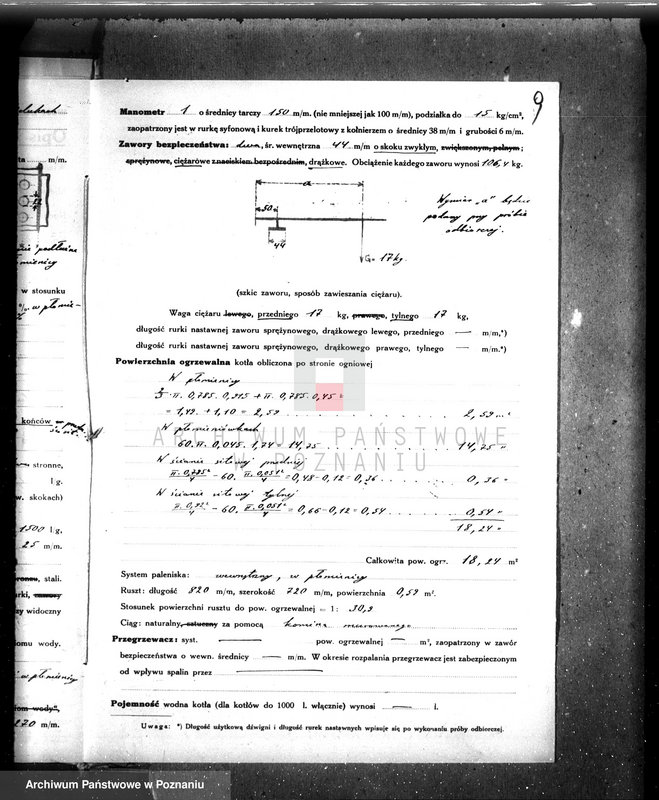 9
Manometr 1 o średnicy tarczy 150 m/m. (nie mniejszej jak 100 m/m), podziałka do 15 kg/cm²,
zaopatrzony jest w rurkę syfonową i kurek trójprzelotowy z kołnierzem o średnicy 38 m/m i grubości 6 m/m.
Zawory bezpieczeństwa: dwa, śr. wewnętrzna 44 m/m o skoku zwykłym, zwiększonym, pełnym;
sprężynowe, ciężarowe z naciskiem bezpośrednim, drążkowe. Obciążenie każdego zaworu wynosi 106,4 kg.
a
50
44
G = 17 kg.
Wymiar „a" będzie
podany przy próbie
odbiorczej.
(szkic zaworu, sposób zawieszania ciężaru).
Waga ciężaru lewego, przedniego 17 kg, prawego, tylnego 17 kg,
długość rurki nastawnej zaworu sprężynowego, drążkowego lewego, przedniego — m/m,*)
długość rurki nastawnej zaworu sprężynowego, drążkowego prawego, tylnego — m/m.*)
Powierzchnia ogrzewalna kotła obliczona po stronie ogniowej
W płomienicy
2/3 π. 0,785. 0,915 + π. 0,785. 0,45 =
= 1,49 + 1,10 = 2,59 2,59 m²
W płomieniówkach
60. π. 0,045. 1,74 = 14,75 14,75 "
W ścianie sitowej przedniej
π. 0,785²/4 — 60. π. 0,051²/4 = 0,48 - 0,12 = 0,36 0,36 "
W ścianie sitowej tylnej
π. 0,92²/4 — 60. π. 0,051²/4 = 0,66 - 0,12 = 0,54 0,54 "
18,24 "
Całkowita pow. ogrz. 18,24 m²
System paleniska: wewnętrzny, w płomienicy
Ruszt: długość 820 m/m, szerokość 720 m/m, powierzchnia 0,59 m².
Stosunek powierzchni rusztu do pow. ogrzewalnej = 1: 30,9
Ciąg: naturalny, sztuczny za pomocą komina murowanego
Przegrzewacz: syst. — pow. ogrzewalnej — m², zaopatrzony w zawór
bezpieczeństwa o wewn. średnicy — m/m. W okresie rozpalania przegrzewacz jest zabezpieczonym
od wpływu spalin przez —
Pojemność wodna kotła (dla kotłów do 1000 l. włącznie) wynosi — l.
Uwaga: *) Długość użytkową dźwigni i długość rurek nastawnych wpisuje się po wykonaniu próby odbiorczej.
m/m.
w stosunku
końców
stronne,
l g.
w. skokach)
1500 l/g,
25 m/m.
stali.
zy widoczny
iomu wody.
270 m/m.
ARCHIWUM PAŃSTWOWE
W POZNANIU
Archiwum Państwowe w Poznaniu